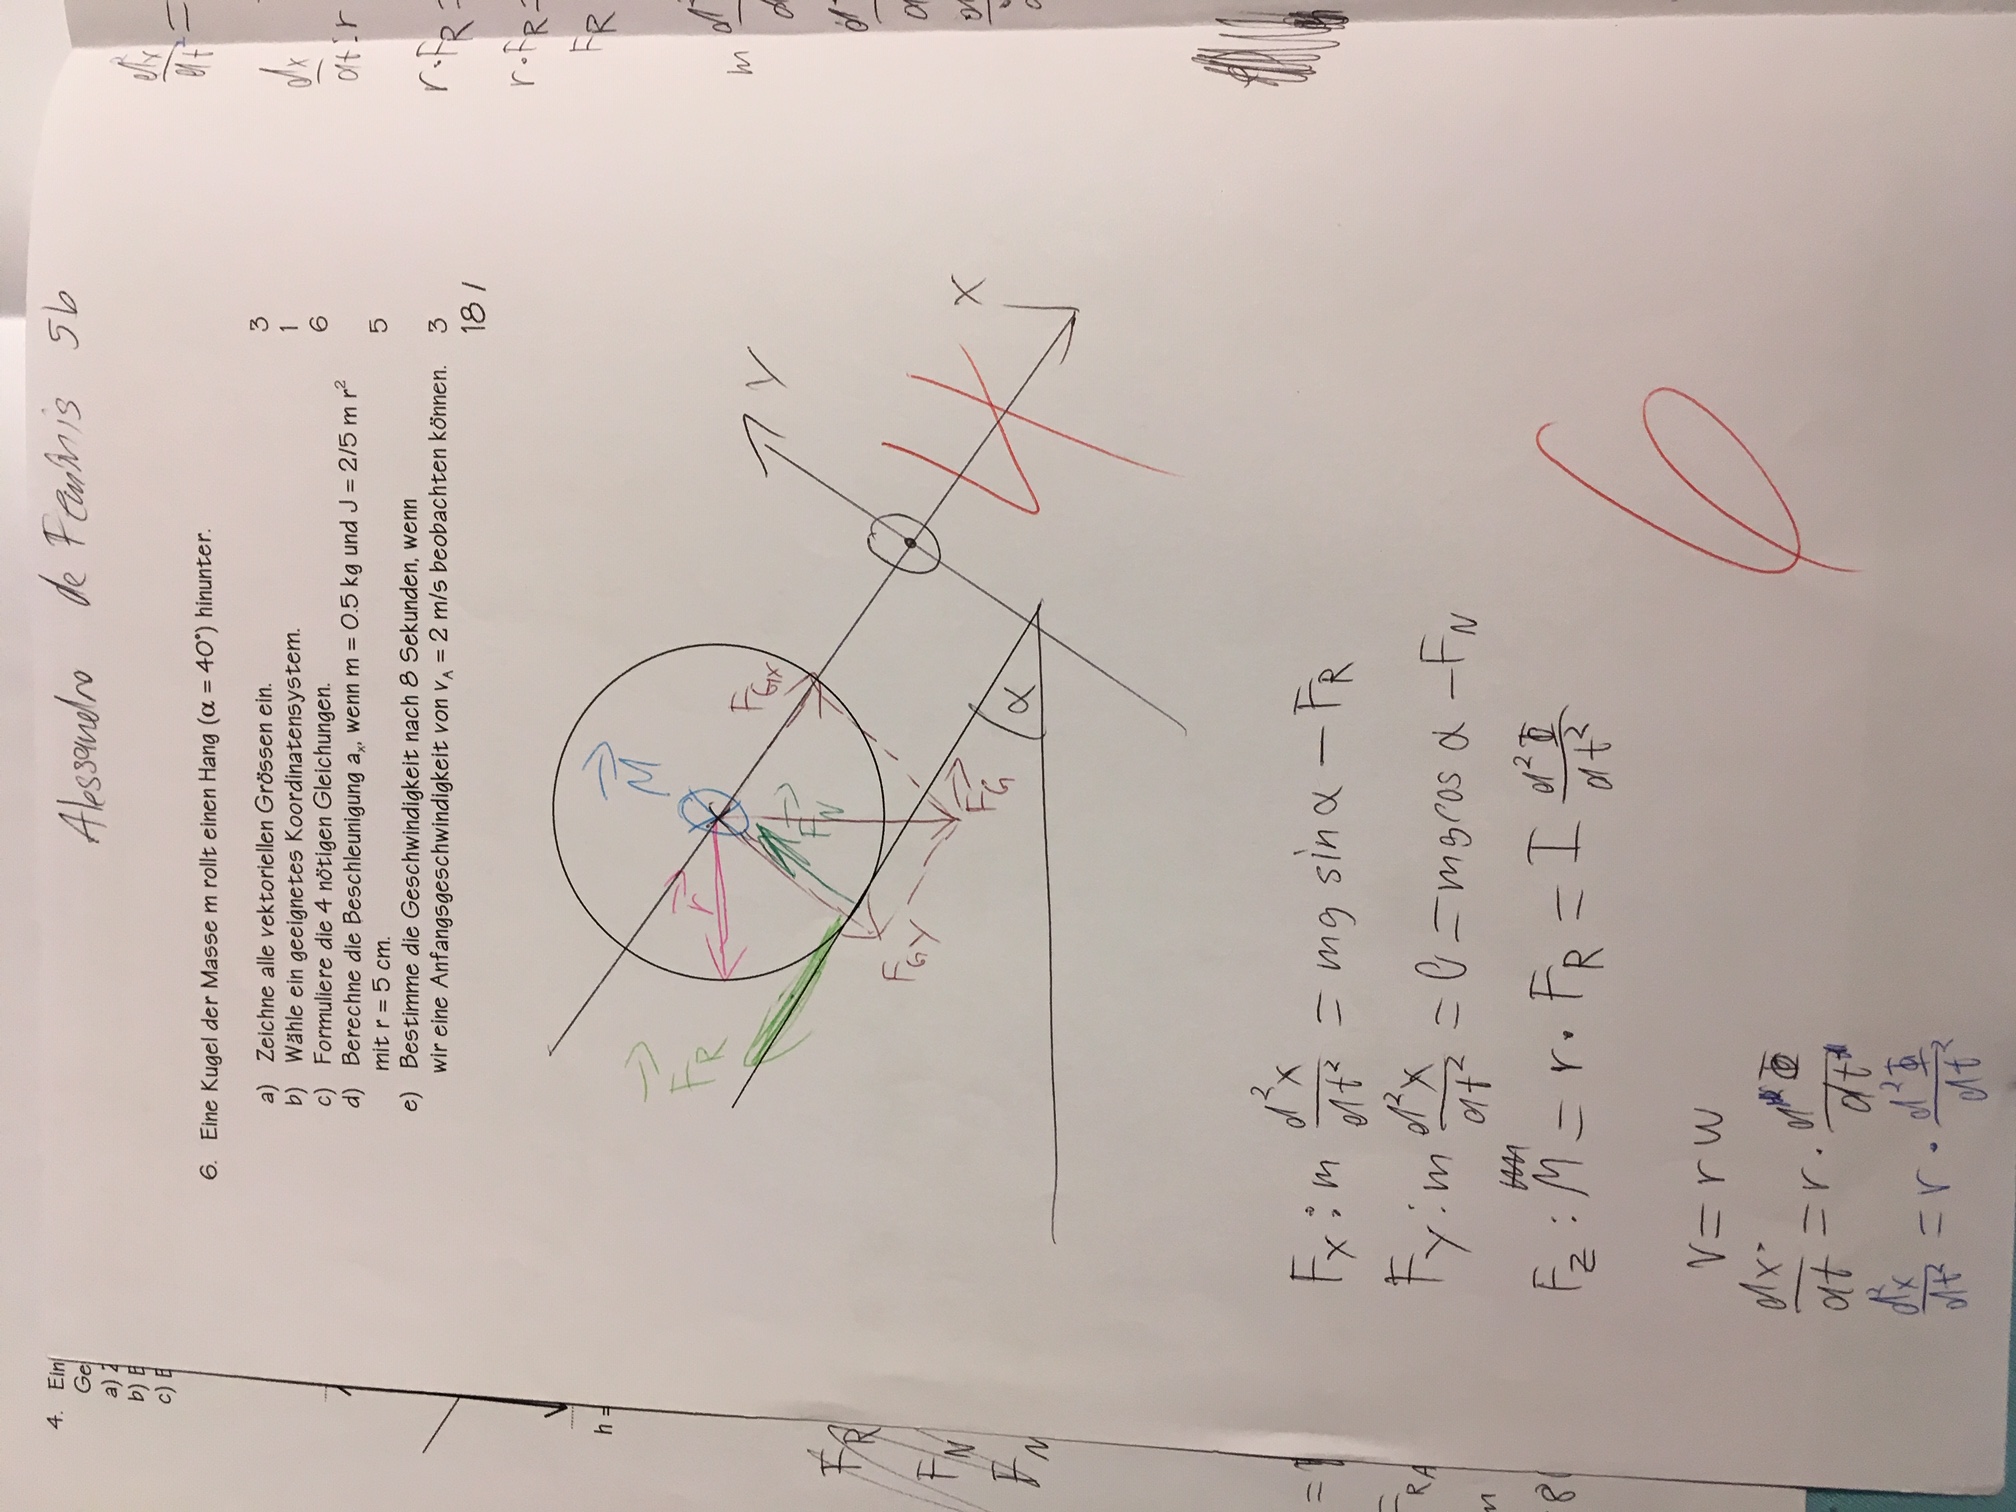 4. Ein
Ge
a) 2
b) E
c) E
h =
Alessandro de Feminis 5b
6. Eine Kugel der Masse m rollt einen Hang (α = 40°) hinunter.
a) Zeichne alle vektoriellen Grössen ein. 3
b) Wähle ein geeignetes Koordinatensystem. 1
c) Formuliere die 4 nötigen Gleichungen. 6
d) Berechne die Beschleunigung aₓ, wenn m = 0.5 kg und J = 2/5 m r²
mit r = 5 cm. 5
e) Bestimme die Geschwindigkeit nach 8 Sekunden, wenn
wir eine Anfangsgeschwindigkeit von v_A = 2 m/s beobachten können. 3
18 /
M
F_R
r
F_Gx
F_N
Y
F_GY
F_G
α
X
4
F_x : m d²x/dt² = mg sin α − F_R
F_y : m d²x/dt² = 0 = mg cos α − F_N
F_z : M = r · F_R = I d²Φ/dt²
6
v = r w
dx/dt = r · dΦ/dt
d²x/dt² = r · d²Φ/dt²
F_R
F_N
F_N
=
F_RA
m
8
d²x/dt² =
dx/dt = r
r·F_R =
r·F_R =
F_R
m